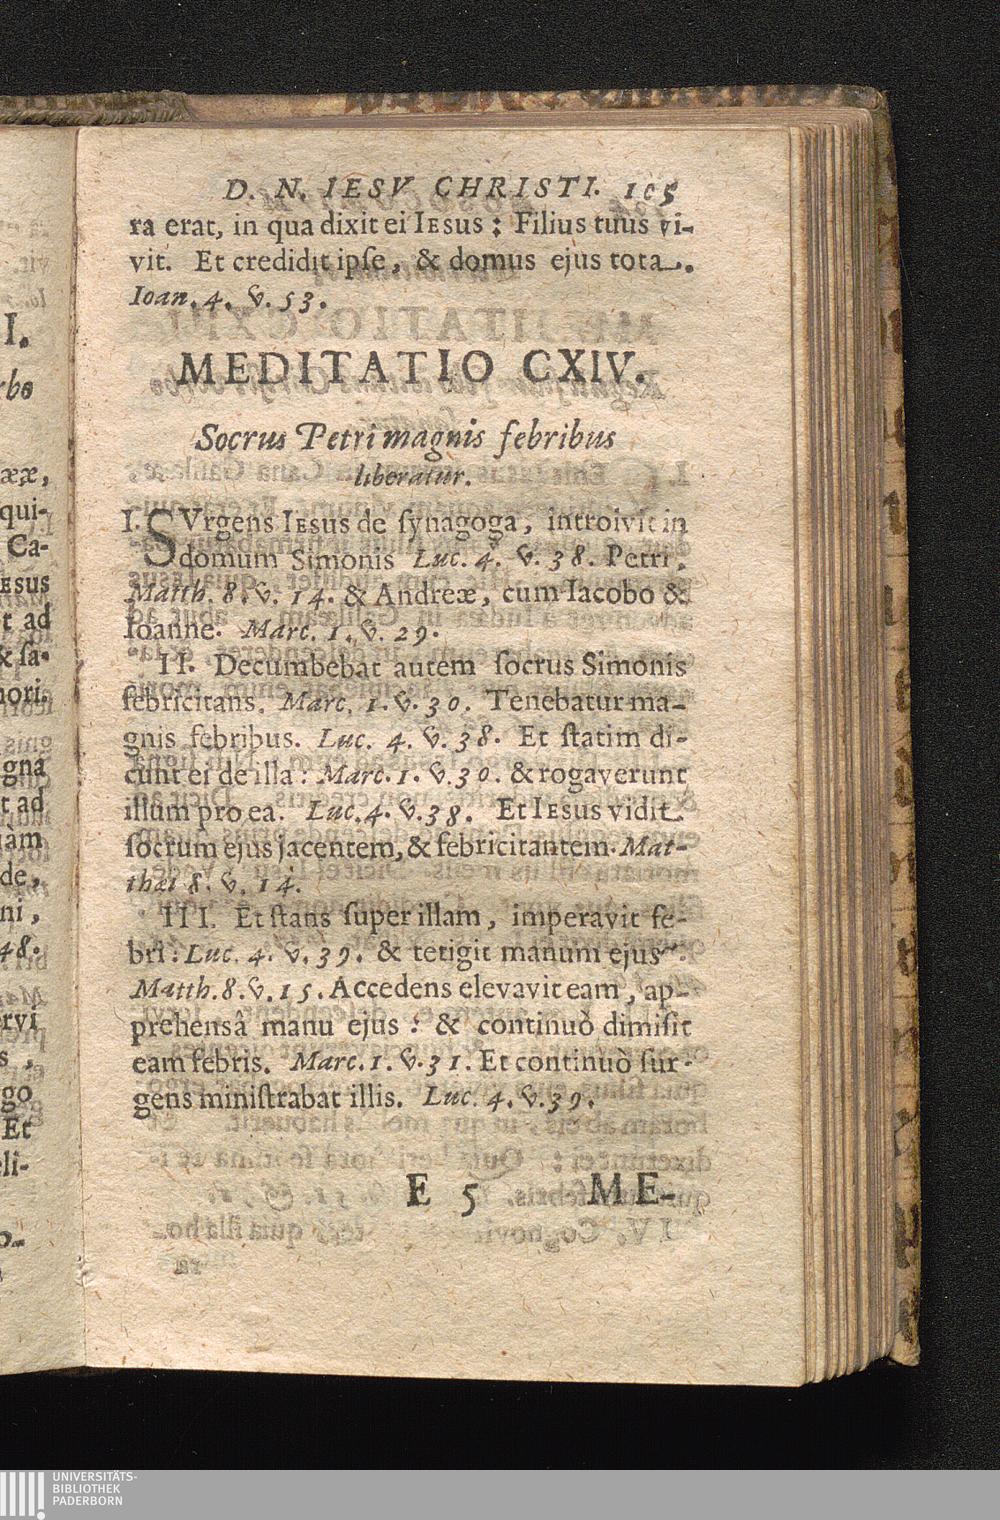 D. N. IESV CHRISTI. 105
ra erat, in qua dixit ei IEsus: Filius tuus vi-
vit. Et credidit ipſe, & domus ejus tota.
Ioan. 4. v. 53.
MEDITATIO CXIV.
Socrus Petri magnis febribus
liberatur.
I. SVrgens IEsus de ſynagoga, introivit in
domum Simonis Luc. 4. v. 38. Petri,
Matth. 8. v. 14. & Andreæ, cum Iacobo &
Ioanne. Marc. 1. v. 29.
II. Decumbebat autem ſocrus Simonis
febricitans. Marc. 1. v. 30. Tenebatur ma-
gnis febribus. Luc. 4. v. 38. Et ſtatim di-
cunt ei de illa: Marc. 1. v. 30. & rogaverunt
illum pro ea. Luc. 4. v. 38. Et IEsus vidit
ſocrum ejus jacentem, & febricitantem. Mat-
thæi 8. v. 14.
III. Et ſtans ſuper illam, imperavit fe-
bri: Luc. 4. v. 39. & tetigit manum ejus.
Matth. 8. v. 15. Accedens elevavit eam, ap-
prehensâ manu ejus: & continuò dimiſit
eam febris. Marc. 1. v. 31. Et continuò ſur-
gens miniſtrabat illis. Luc. 4. v. 39.
E 5 ME-
UNIVERSITÄTS-
BIBLIOTHEK
PADERBORN